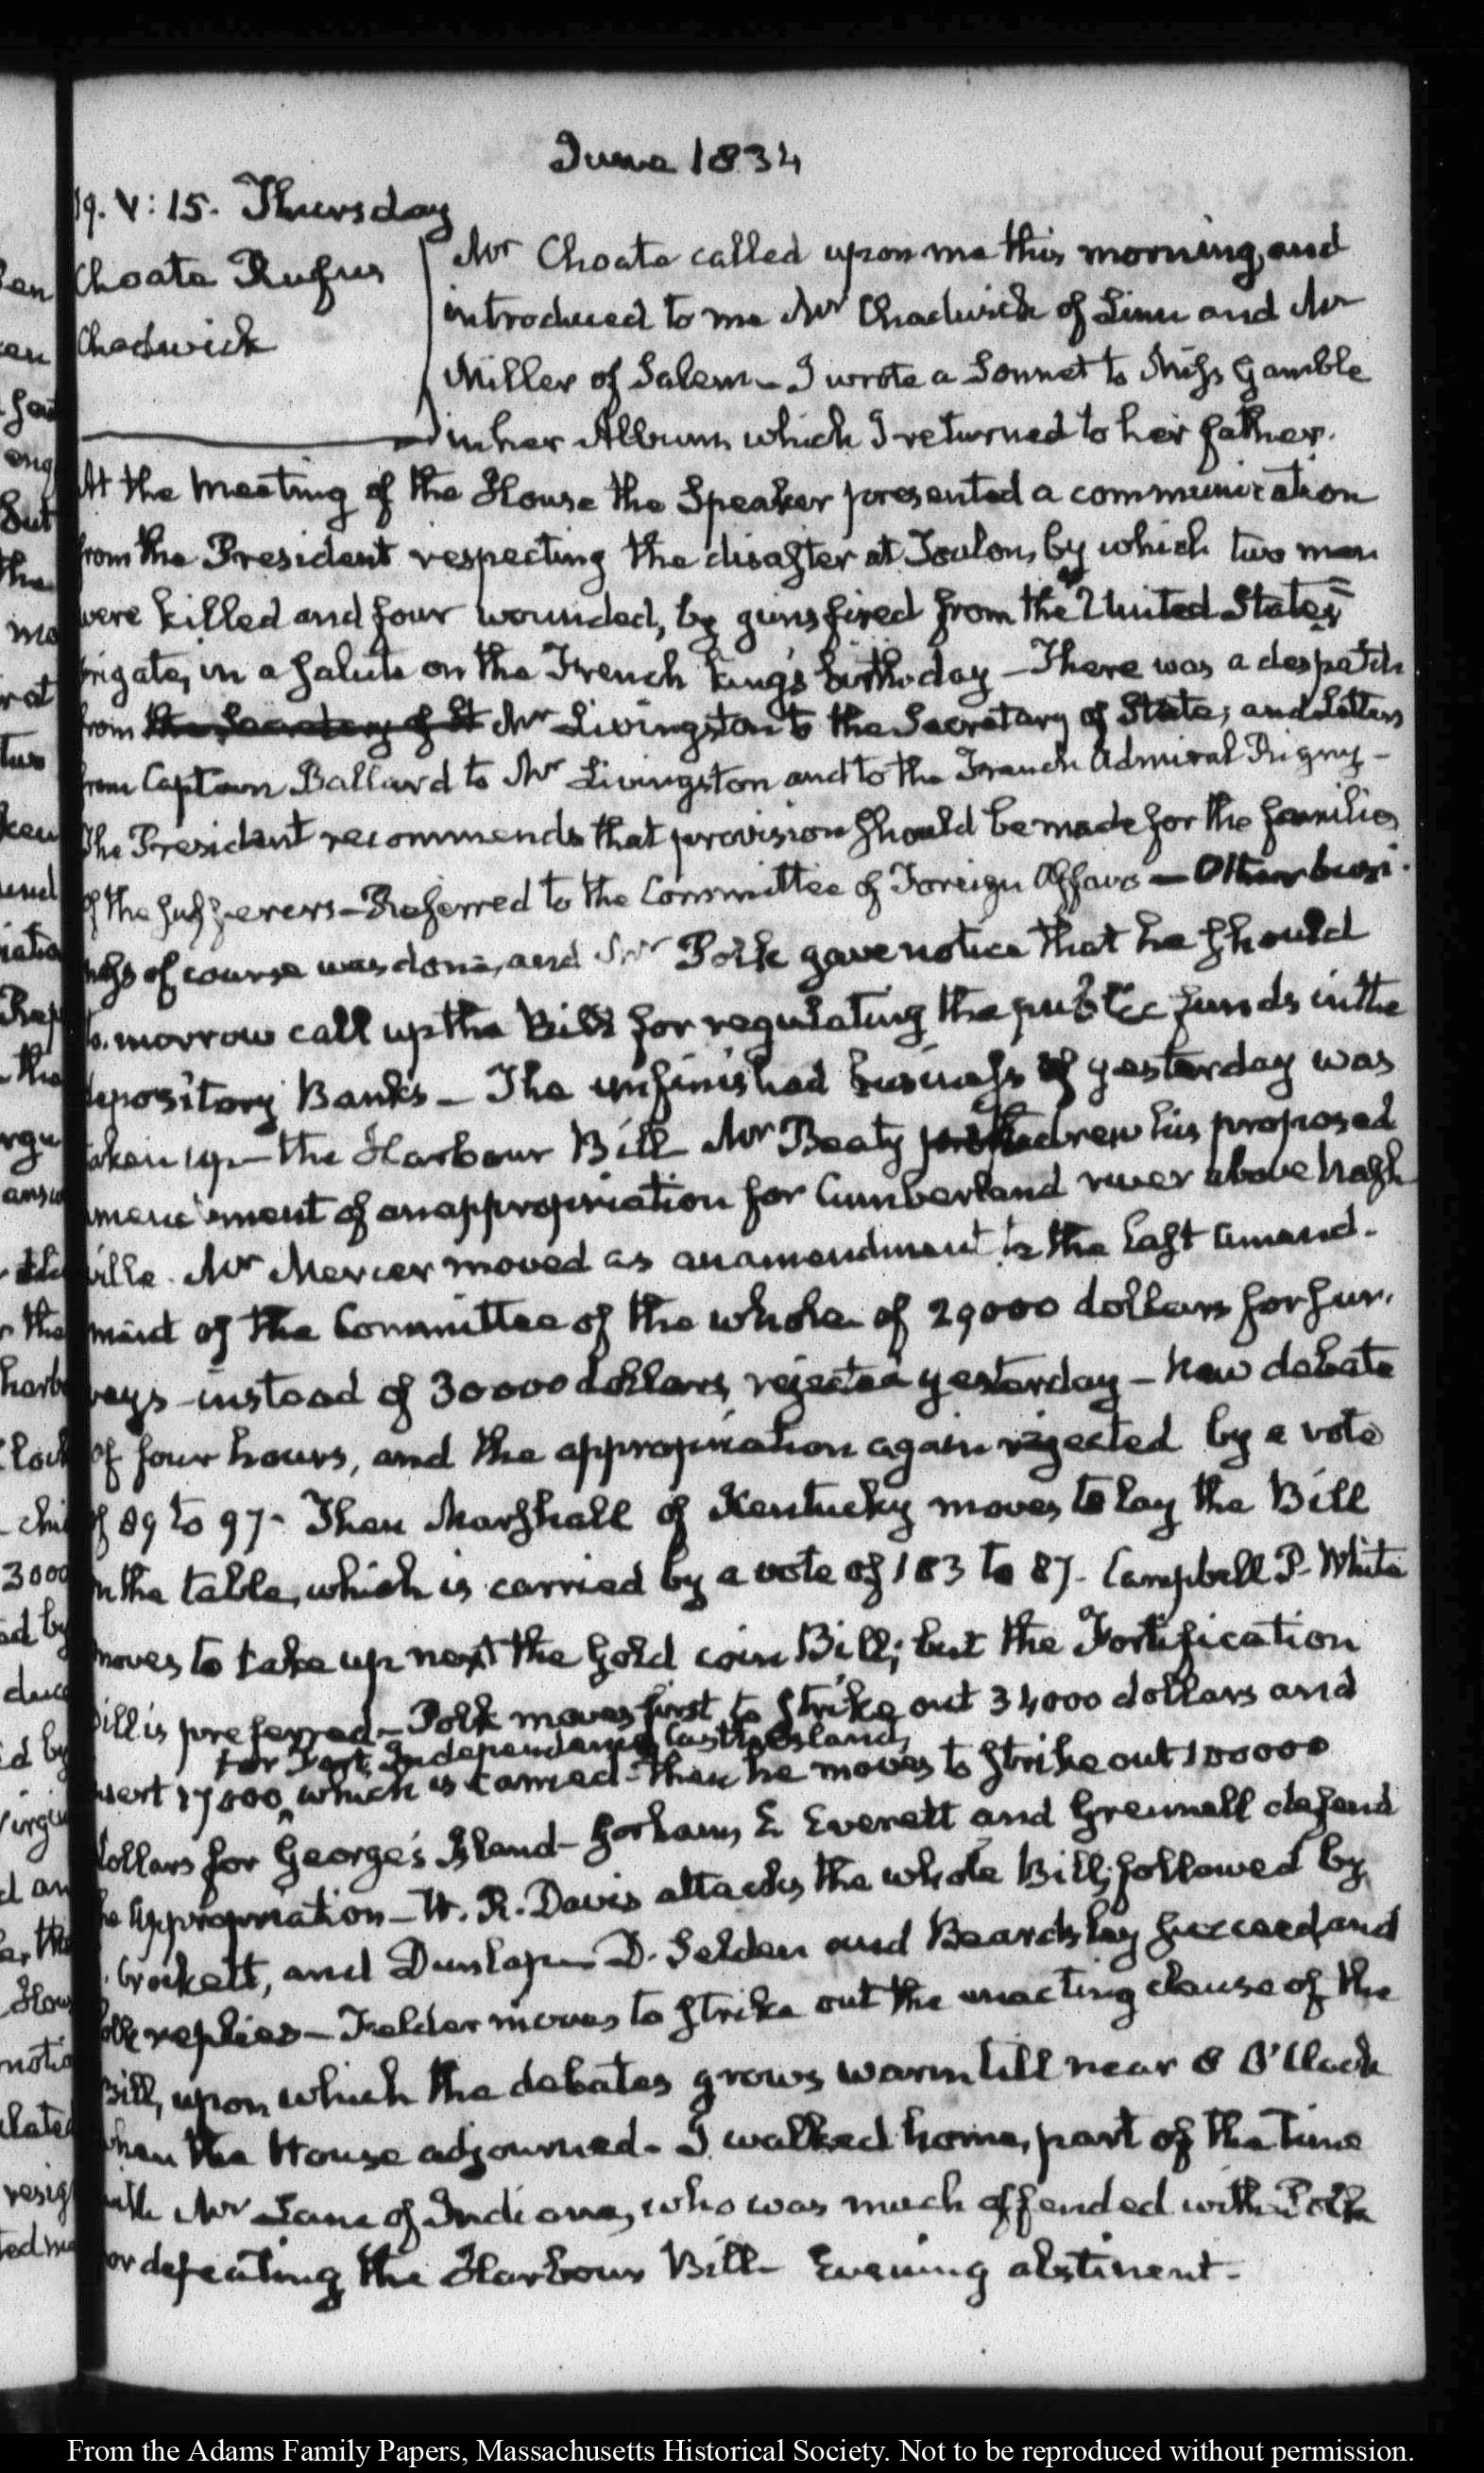 June 1834
19. V: 15. Thursday
Choate Rufus
Chadwick
Mr Choate called upon me this morning, and
introduced to me Mr Chadwick of Linn and Mr
Miller of Salem – I wrote a Sonnet to Miss Gamble
in her Album, which I returned to her father.
At the meeting of the House the Speaker presented a communication
from the President respecting the disaster at Toulon, by which two men
were killed and four wounded, by guns fired from the United States
frigate, in a salute on the French king's birth-day – There was a despatch
from the Secretary of St Mr Livingston to the Secretary of State; and Letters
from Captain Ballard to Mr Livingston and to the French Admiral Rigny –
The President recommends that provision should be made for the families
of the sufferers – Referred to the Committee of Foreign Affairs – Other busi-
ness of course was done, and Mr Polk gave notice that he should
to-morrow call up the Bill for regulating the public funds in the
depository Banks – The unfinished business of yesterday was
taken up – the Harbour Bill Mr Beaty drew his proposed
amendment of an appropriation for Cumberland river above Nash-
ville. Mr Mercer moved as an amendment to the last amend-
ment of the Committee of the whole of 29000 dollars for sur-
veys – instead of 30000 dollars, rejected yesterday – New debate
of four hours, and the appropriation again rejected by a vote
of 89 to 97 – Then Marshall of Kentucky moves to lay the Bill
on the table, which is carried by a vote of 103 to 87 – Campbell P. White
moves to take up next the Gold coin Bill; but the Fortification
Bill is preferred – Polk moves first to strike out 34000 dollars and
for Fort Independence Castle Island,
insert 17000, which is carried – then he moves to strike out 100000
dollars for George's Island – Gorham, E Everett and Grennell defend
the Appropriation – W. R. Davis attacks the whole Bill; followed by
Crockett, and Dunlap – D. Selden and Beardsley succeed, and
Polk replies – Felder moves to strike out the enacting clause of the
Bill, upon which the debates grows warm till near 8 O'Clock
when the House adjourned – I walked home, part of the time
with Mr Lane of Indiana, who was much offended with Polk
for defeating the Harbour Bill – Evening abstinent –
From the Adams Family Papers, Massachusetts Historical Society. Not to be reproduced without permission.